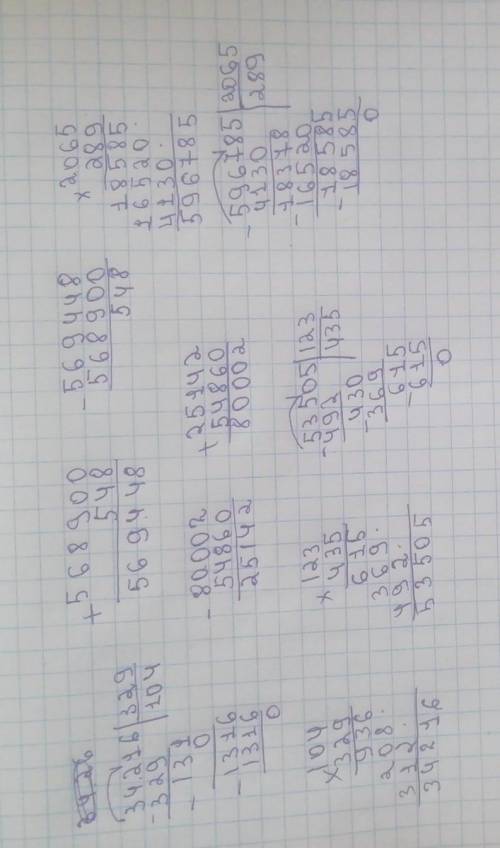 34216 | 329
- 329 | 104
- 131
0
- 1316
1316
0
+ 568900
548
569448
- 569448
568900
548
× 2065
289
18585
16520.
4130.
596785
- 80002
54860
25142
+ 25142
54860
80002
- 596785 | 2065
4130 | 289
18378
- 16520
18585
- 18585
0
104
× 329
936
208.
312.
34216
× 123
435
615
369.
492.
53505
53505 | 123
- 492 | 435
430
- 369
615
- 615
0